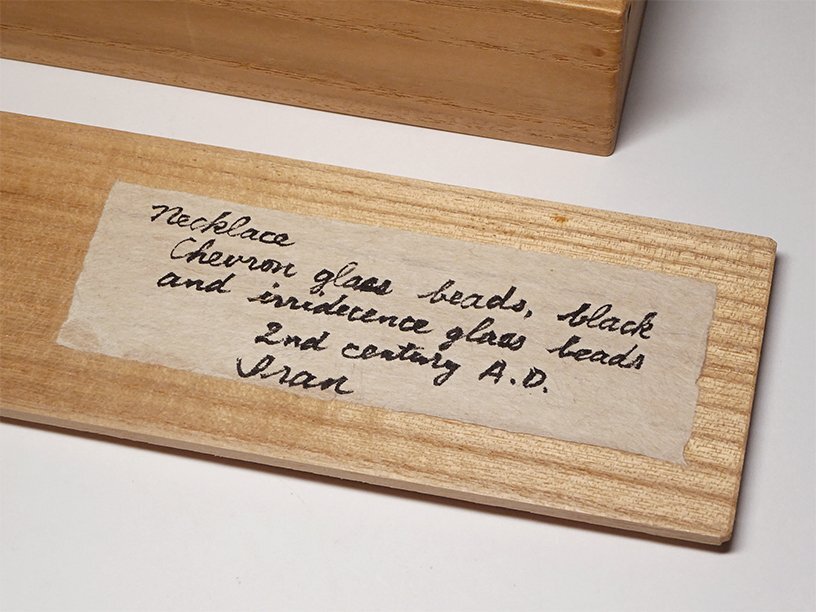 Necklace
Chevron glass beads, black
and irridecence glass beads
2nd century A.D.
Iran